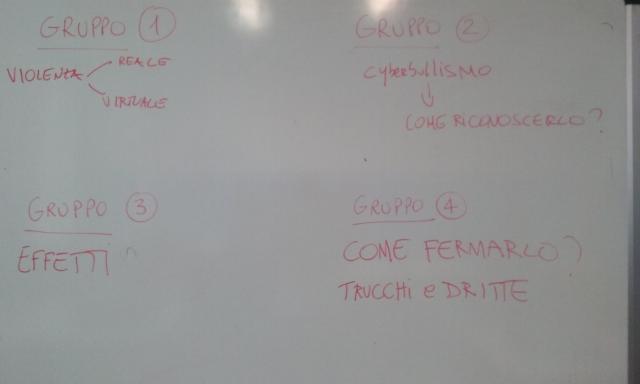 GRUPPO 1
VIOLENZA
REALE
VIRTUALE
GRUPPO 2
CyberbulliSMO
COME RiCONOSCERLO?
GRUPPO 3
EFFETTI
GRUPPO 4
COME FERMARLO?
TRUCCHi e DRITTE